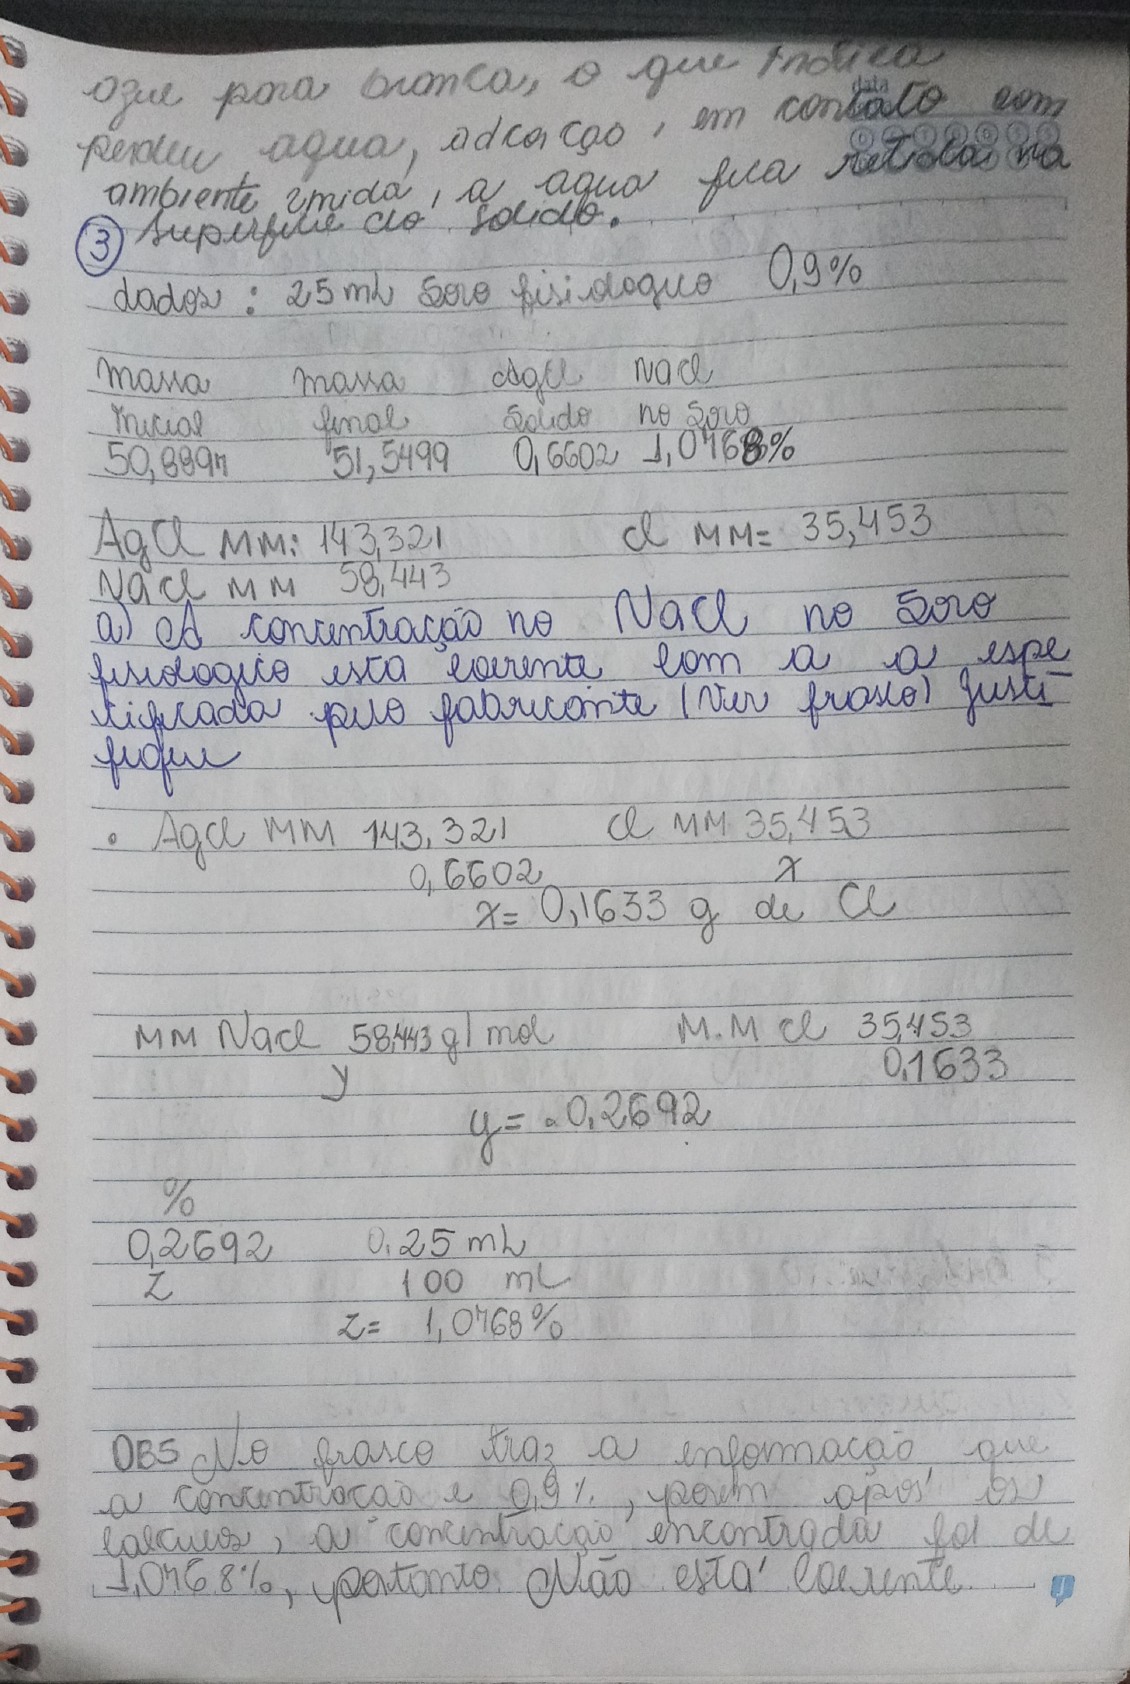 azue para branca, o que indica
data
perdeu agua, adsorção, em contato com
ambiente úmida, a agua fica retida na
superficie do solido.
3
dados: 25 mL Soro fisiologico 0,9%
massa massa AgCl NaCl
inicial final solido no soro
50,8897 51,5499 0,6602 1,0768%
AgCl MM: 143,321 Cl MM= 35,453
NaCl MM 58,443
a) A concentração no NaCl no Soro
fisiologico esta coerente com a a espe
cificada pelo fabricante (Ver frasco) Justi
fique
• AgCl MM 143,321 Cl MM 35,453
0,6602 x
x= 0,1633 g de Cl
MM NaCl 58,443 g/mol M.M Cl 35,453
y 0,1633
y= 0,2692
%
0,2692 0,25 mL
Z 100 mL
z= 1,0768%
OBS No frasco traz a enformação que
a concentração e 0,9%, porem após os
calculos, a concentração encontrada foi de
1,0768%, portanto Não está coerente